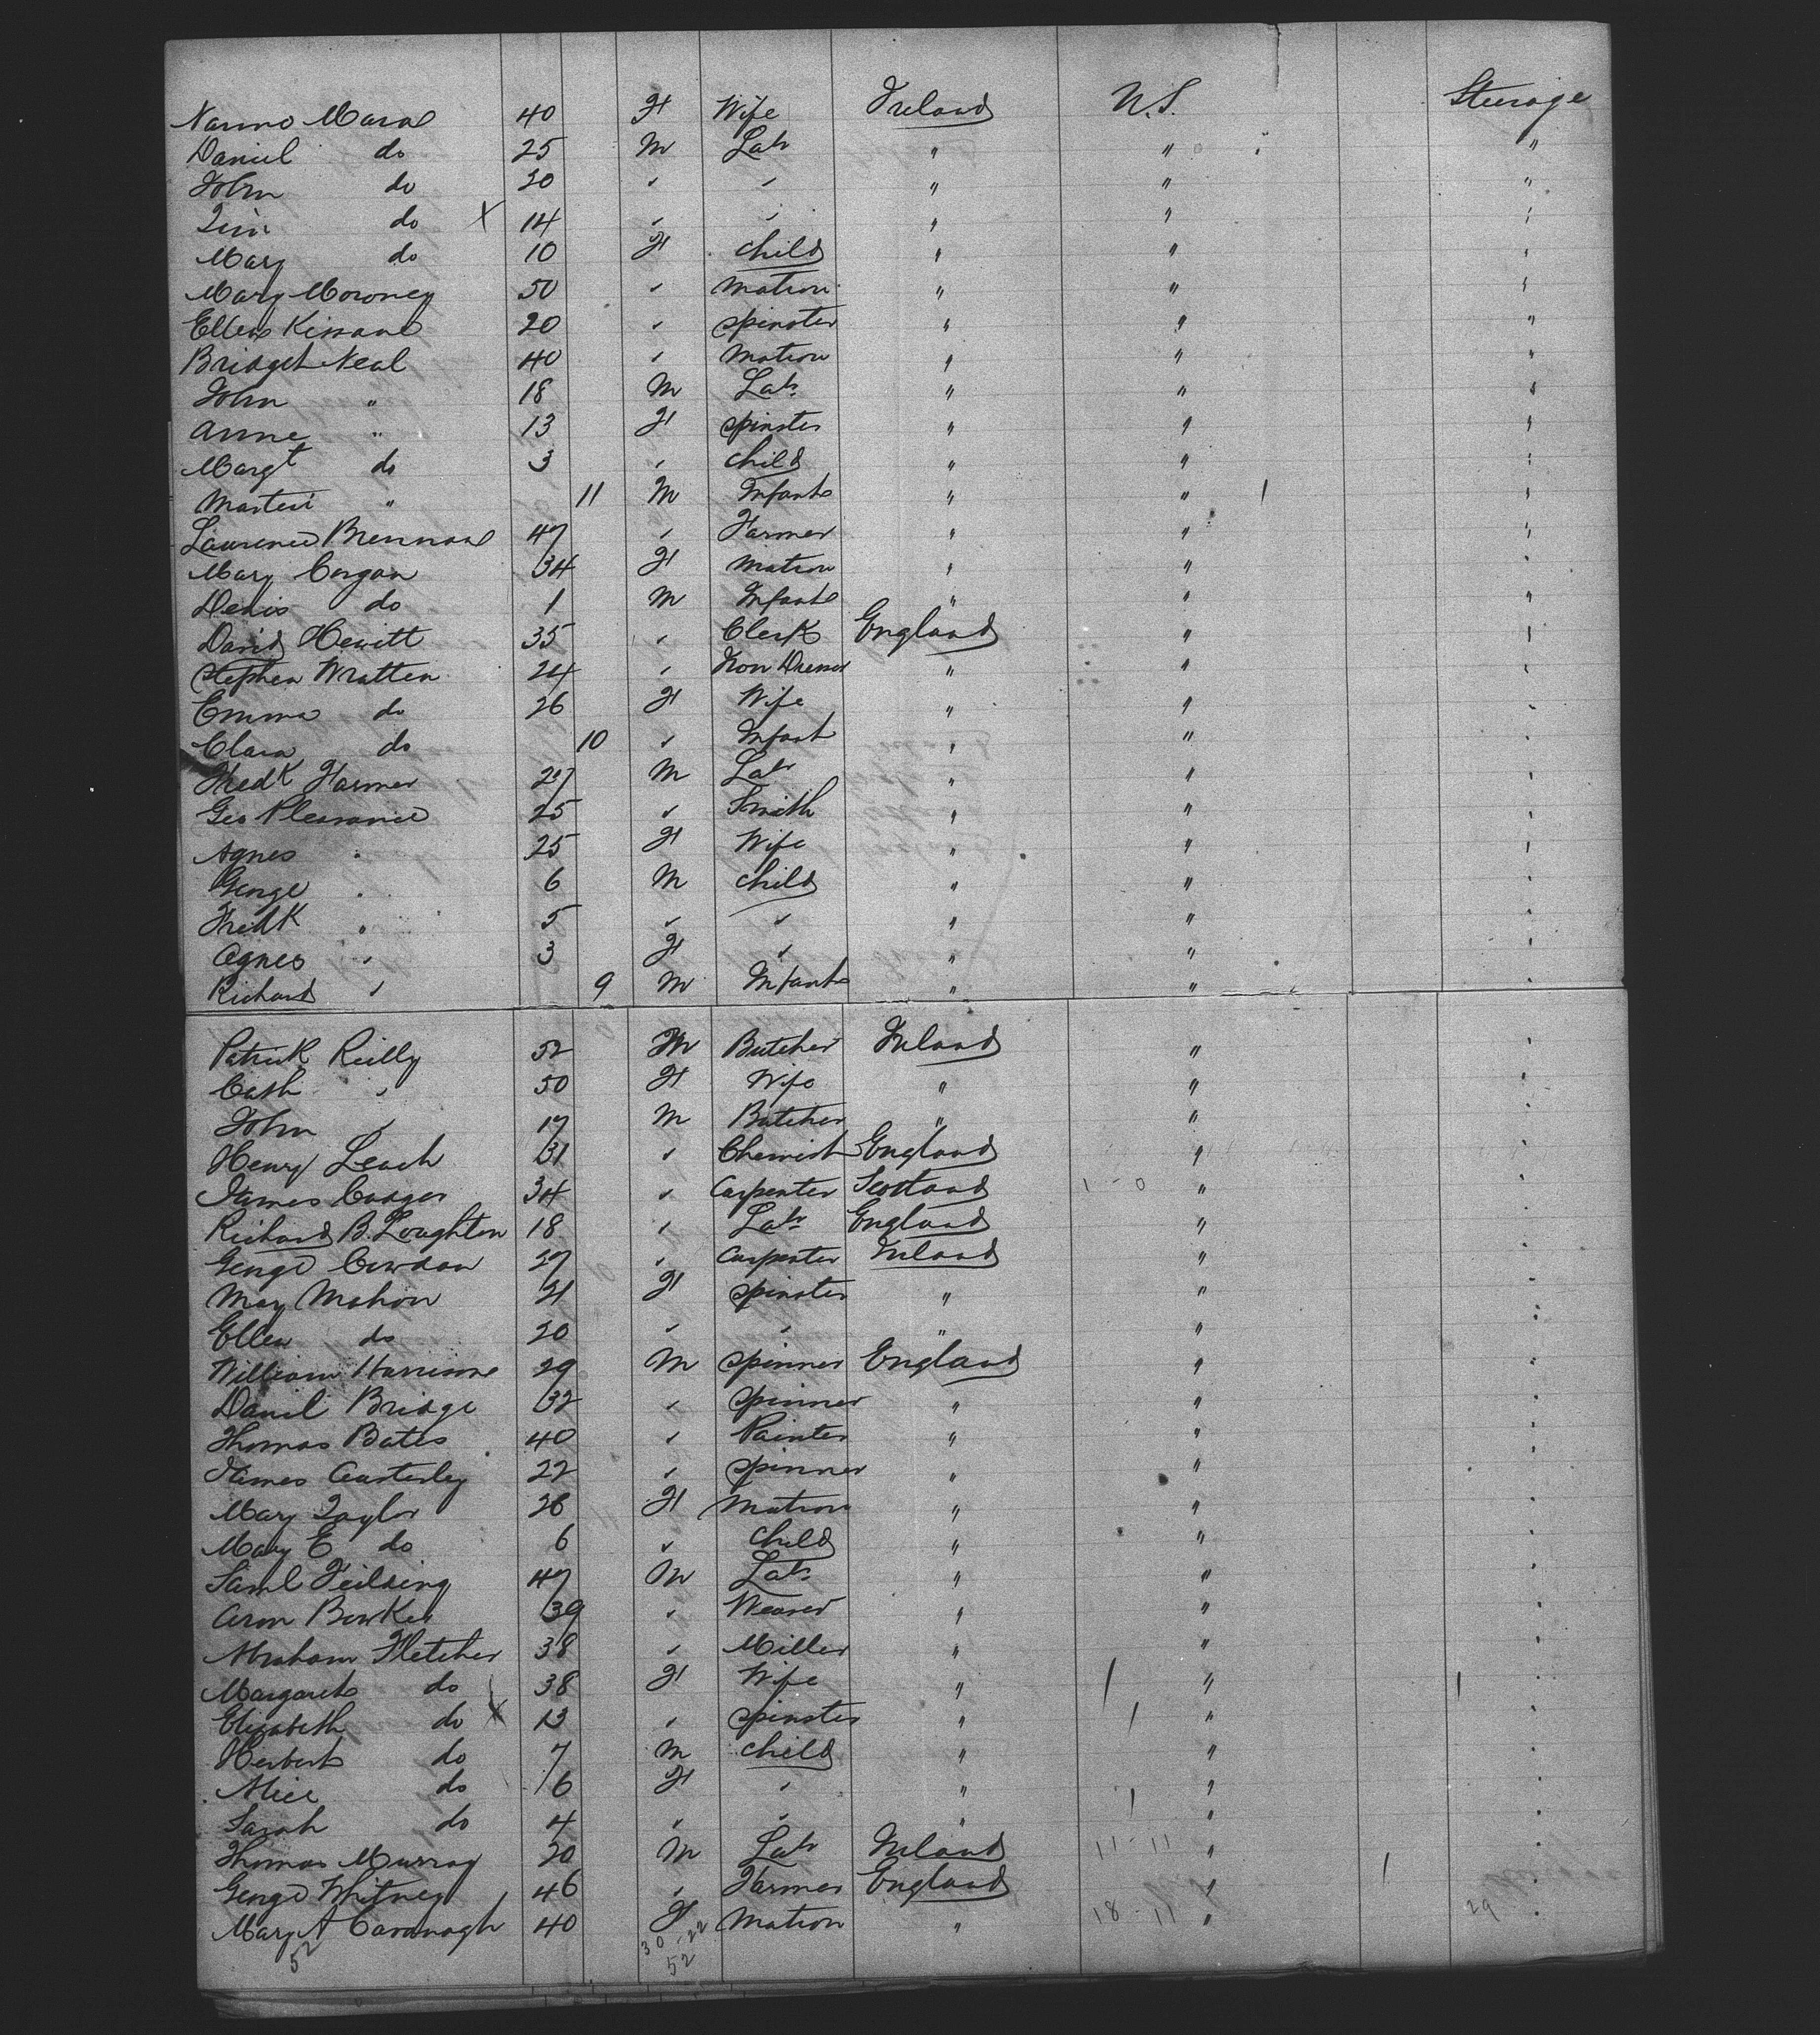 Nanno Mara 40 F Wife Ireland U.S. Steerage
Daniel do 25 M Labr " " "
John do 20 " " " " "
Jim do X 14 " " " " "
Mary do 10 F child " " "
Mary Moroney 50 " Matron " " "
Ellen Kissane 20 " spinster " " "
Bridget Neal 40 " Matron " " "
John " 18 M Labr " " "
Anne " 13 F spinster " " "
Margt do 3 " child " " "
Martin " 11 M Infant " " "
Laurence Brennan 47 " Farmer " " "
Mary Corgan 34 F Matron " " "
Denis do 1 M Infant " " "
David Hewitt 35 " Clerk England " "
Stephen Wratten 24 " Iron Dresser " " "
Emma do 26 F Wife " " "
Clara do 10 " Infant " " "
Fredk Farmer 27 M Labr " " "
Geo Pleasance 25 " Smith " " "
Agnes " 25 F Wife " " "
George " 6 M child " " "
Fredk " 5 " " " " "
Agnes " 3 F " " " "
Richard " 9 M Infant " " "
Patrick Reilly 52 M Butcher Ireland " "
Cath " 50 F Wife " " "
John " 17 M Butcher " " "
Henry Leach 31 " Chemist England " "
James 34 " Carpenter Scotland " "
Richard B. Loughton 18 " Labr England " "
George Cowdan 27 " Carpenter Ireland " "
May Mahon 21 F spinster " " "
Ellen do 20 " " " " "
William Harrison 29 M spinner England " "
Daniel Bridge 32 " spinner " " "
Thomas Bates 40 " Painter " " "
James 22 " spinner " " "
Mary Taylor 26 F Matron " " "
Mary E do 6 " child " " "
Saml Feilding 47 M Labr " " "
Aron Bowker 39 " Weaver " " "
Abraham Fletcher 38 " Miller " " "
Margaret do 38 F Wife " " "
Elizabeth do X 13 " spinster " " "
Herbert do 7 M child " " "
Alice do 6 F " " " "
Sarah do 4 " " " " "
Thomas Murray 20 M Labr Ireland 11-11 " "
George Whitney 46 " Farmer England " "
Mary A Cavanagh 40 F Matron " 18-11 " 29 "
52 30-22
52